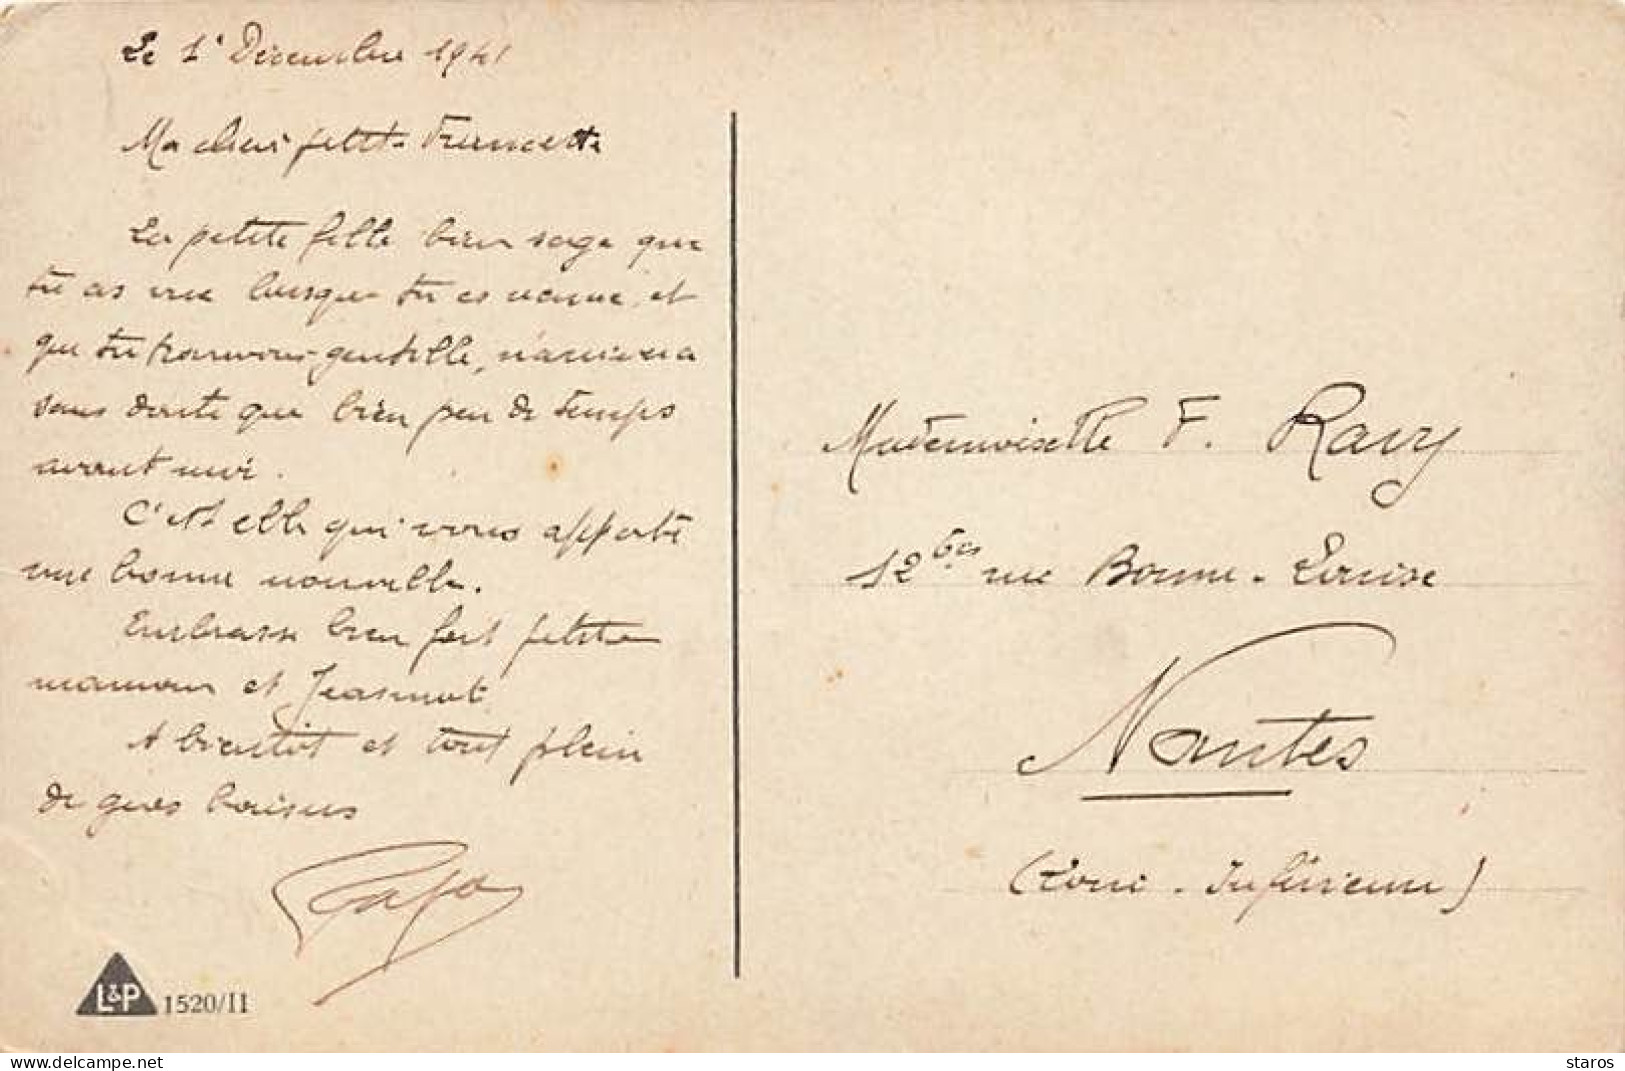 Le 1er Décembre 1941
Ma chère petite Francette
La petite fille bien sage que
tu as vue lorsque tu es venue, et
que tu trouvais gentille, n'arrivera
sans doute que bien peu de temps
avant moi.
C'est elle qui vous apporte
une bonne nouvelle.
Embrasse bien fort petite
maman et Jeannot
A bientôt et tout plein
de gros baisers
Papa
L&P 1520/II
Mademoiselle F. Ravy
12 bis rue Bonne-Louise
Nantes
(Loire-Inférieure)
staros